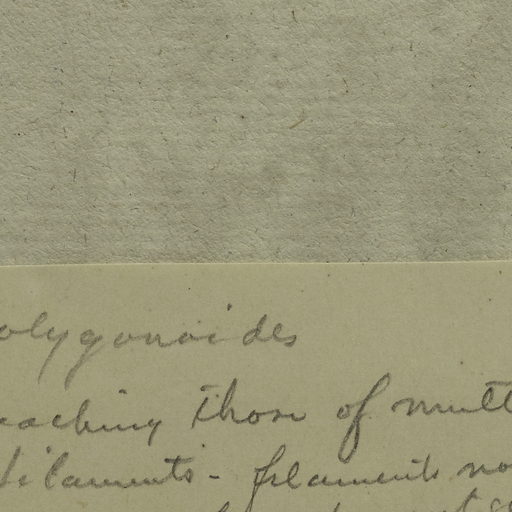 olygonoides
eaching those of mutt
filaments - filaments no